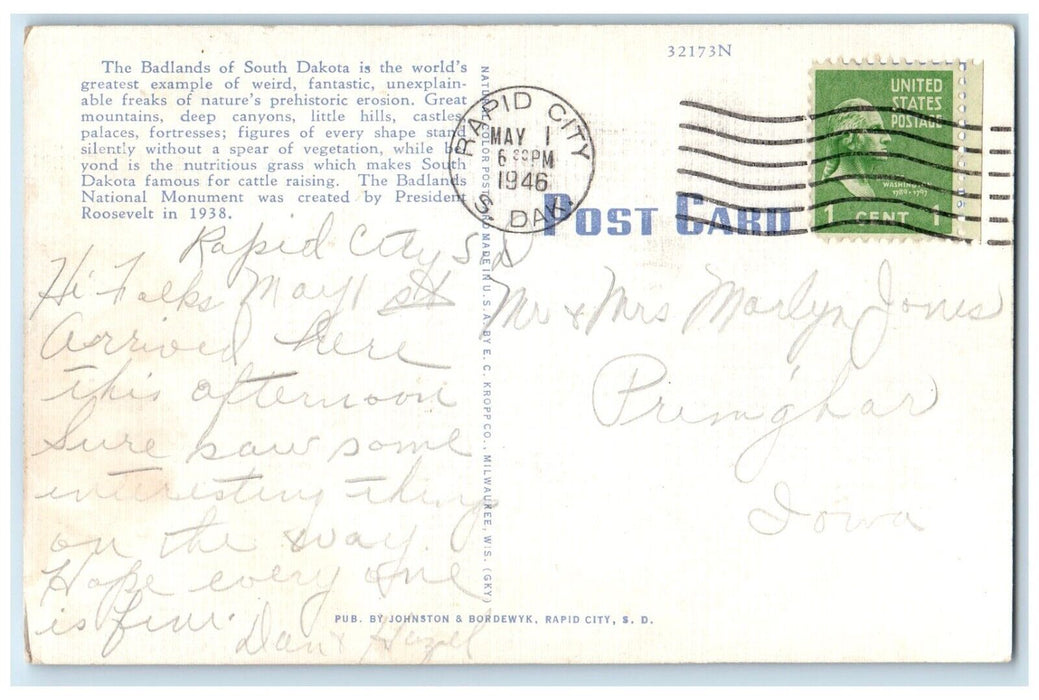 32173N
The Badlands of South Dakota is the world's
greatest example of weird, fantastic, unexplain-
able freaks of nature's prehistoric erosion. Great
mountains, deep canyons, little hills, castles,
palaces, fortresses; figures of every shape stand
silently without a spear of vegetation, while be
yond is the nutritious grass which makes South
Dakota famous for cattle raising. The Badlands
National Monument was created by President
Roosevelt in 1938.
RAPID CITY
MAY 1
6 PM
1946
S. DAK
UNITED
STATES
POSTAGE
WASHINGTON
1789-1797
1 CENT 1
POST CARD
NATURAL COLOR POST CARD MADE IN U.S.A. BY E. C. KROPP CO., MILWAUKEE, WIS. (GKY)
Rapid City S d
Hi Folks May 1 st
Arrived here
this afternoon
Sure saw some
interesting thing
on the way.
Hope every one
is fine.
Dan & Hazel
Mr & Mrs Marlyn Jones
Primghar
Iowa
PUB. BY JOHNSTON & BORDEWYK, RAPID CITY, S. D.